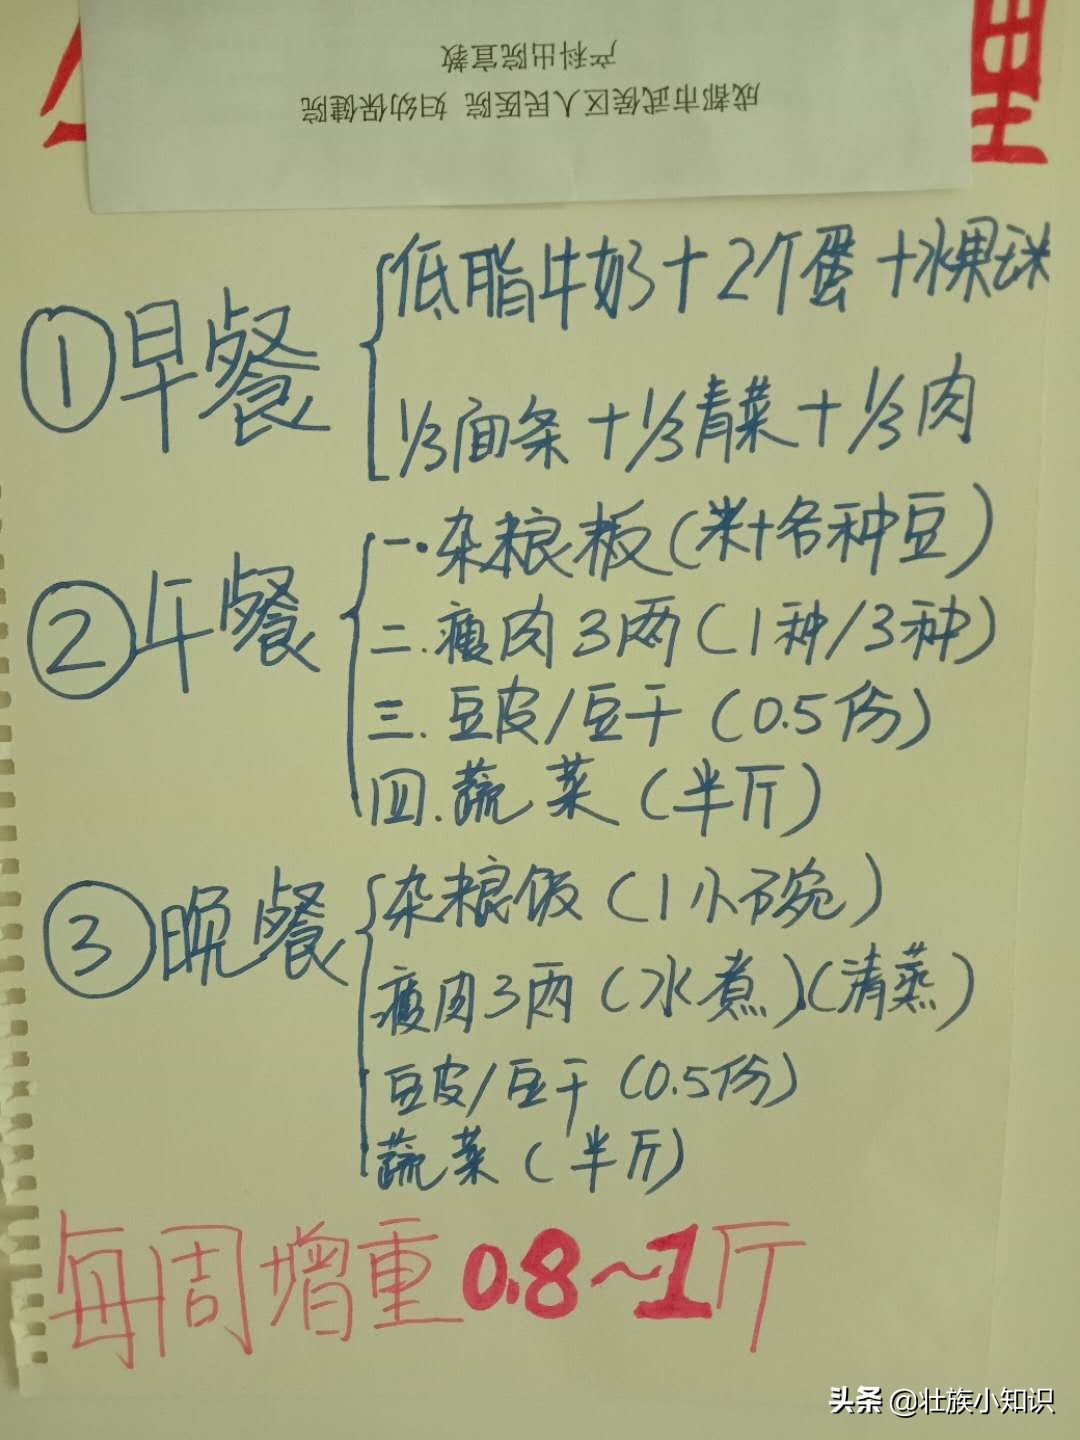 成都市武侯区人民医院 妇幼保健院
产科出院宣教
里
①早餐
低脂牛奶+2个蛋+水果
1/3面条+1/3青菜+1/3肉
②午餐
一.杂粮板(米+各种豆)
二.瘦肉3两(1种/3种)
三.豆皮/豆干(0.5份)
四.蔬菜(半斤)
③晚餐
杂粮饭(1小碗)
瘦肉3两(水煮)(清蒸)
豆皮/豆干(0.5份)
蔬菜(半斤)
每周增重0.8~1斤
头条 @壮族小知识